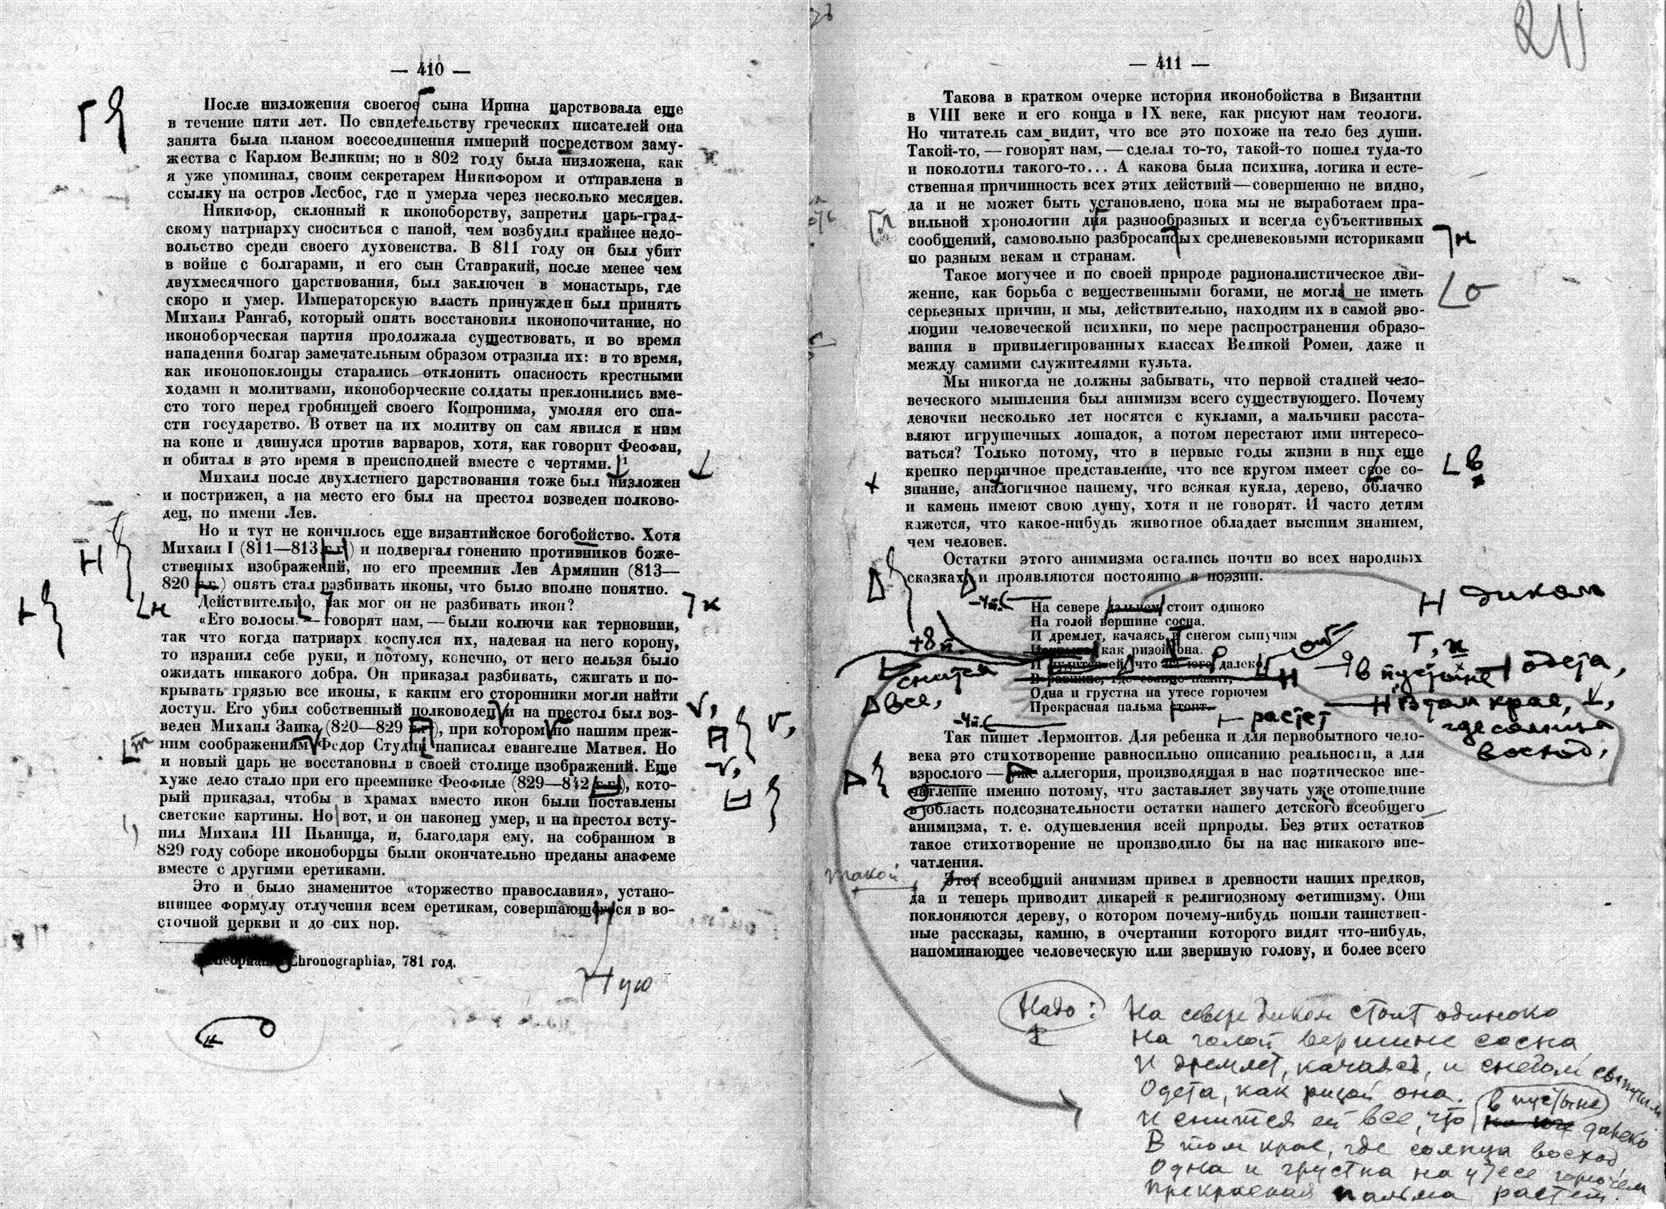 — 410 —
После низложения своего сына Ирина царствовала еще
в течение пяти лет. По свидетельству греческих писателей она
занята была планом воссоединения империй посредством заму-
жества с Карлом Великим; но в 802 году была низложена, как
я уже упоминал, своим секретарем Никифором и отправлена в
ссылку на остров Лесбос, где и умерла через несколько месяцев.
Никифор, склонный к иконоборству, запретил царь-град-
скому патриарху сноситься с папой, чем возбудил крайнее недо-
вольство среди своего духовенства. В 811 году он был убит
в войне с болгарами, и его сын Ставракий, после менее чем
двухмесячного царствования, был заключен в монастырь, где
скоро и умер. Императорскую власть принужден был принять
Михаил Рангаб, который опять восстановил иконопочитание, но
иконоборческая партия продолжала существовать, и во время
нападения болгар замечательным образом отразила их: в то время,
как иконопоклонцы старались отклонить опасность крестными
ходами и молитвами, иконоборческие солдаты преклонились вме-
сто того перед гробницей своего Копронима, умоляя его спа-
сти государство. В ответ на их молитву он сам явился к ним
на коне и двинулся против варваров, хотя, как говорит Феофан,
и обитал в это время в преисподней вместе с чертями. ¹
Михаил после двухлетнего царствования тоже был низложен
и пострижен, а на место его был на престол возведен полково-
дец, по имени Лев.
Но и тут не кончилось еще византийское богобойство. Хотя
Михаил I (811—813 г.г.) и подвергал гонению противников боже-
ственных изображений, но его преемник Лев Армянин (813—
820 г.г.) опять стал разбивать иконы, что было вполне понятно.
Действительно, как мог он не разбивать икон?
«Его волосы — говорят нам, — были колючи как терновник,
так что когда патриарх коснулся их, надевая на него корону,
то изранил себе руки, и потому, конечно, от него нельзя было
ожидать никакого добра. Он приказал разбивать, сжигать и по-
крывать грязью все иконы, к каким его сторонники могли найти
доступ. Его убил собственный полководец и на престол был воз-
веден Михаил Заика (820—829 г.г.), при котором по нашим преж-
ним соображениям Федор Студит написал евангелие Матвея. Но
и новый царь не восстановил в своей столице изображений. Еще
хуже дело стало при его преемнике Феофиле (829—842 г.г.), кото-
рый приказал, чтобы в храмах вместо икон были поставлены
светские картины. Но вот, и он наконец умер, и на престол всту-
пил Михаил III Пьяница, и, благодаря ему, на собранном в
829 году соборе иконоборцы были окончательно преданы анафеме
вместе с другими еретиками.
Это и было знаменитое «торжество православия», устано-
вившее формулу отлучения всем еретикам, совершающегося в во-
сточной церкви и до сих пор.
Chronographia», 781 год.
ую
— 411 —
Такова в кратком очерке история иконобойства в Византии
в VIII веке и его конца в IX веке, как рисуют нам теологи.
Но читатель сам видит, что все это похоже на тело без души.
Такой-то, — говорят нам, — сделал то-то, такой-то пошел туда-то
и поколотил такого-то... А какова была психика, логика и есте-
ственная причинность всех этих действий — совершенно не видно,
да и не может быть установлено, пока мы не выработаем пра-
вильной хронологии для разнообразных и всегда субъективных
сообщений, самовольно разбросанных средневековыми историками
по разным векам и странам.
Такое могучее и по своей природе рационалистическое дви-
жение, как борьба с вещественными богами, не могла не иметь
серьезных причин, и мы, действительно, находим их в самой эво-
люции человеческой психики, по мере распространения образо-
вания в привилегированных классах Великой Ромеи, даже и
между самими служителями культа.
Мы никогда не должны забывать, что первой стадией чело-
веческого мышления был анимизм всего существующего. Почему
девочки несколько лет носятся с куклами, а мальчики расста-
вляют игрушечных лошадок, а потом перестают ими интересо-
ваться? Только потому, что в первые годы жизни в них еще
крепко первичное представление, что все кругом имеет свое со-
знание, аналогичное нашему, что всякая кукла, дерево, облачко
и камень имеют свою душу, хотя и не говорят. И часто детям
кажется, что какое-нибудь животное обладает высшим знанием,
чем человек.
Остатки этого анимизма остались почти во всех народных
сказках и проявляются постоянно в поэзии.
На севере дальнем стоит одиноко
На голой вершине сосна.
И дремлет, качаясь, и снегом сыпучим
как ризой она.
И ей, что на юге далеко
В равнине, где солнце
Одна и грустна на утесе горючем
Прекрасная пальма стоит.
диком
одета,
в пустыне
снится
все,
в том крае,
где солнца
восход,
растет
Так пишет Лермонтов. Для ребенка и для первобытного чело-
века это стихотворение равносильно описанию реальности, а для
взрослого — уже аллегория, производящая в нас поэтическое впе-
чатление именно потому, что заставляет звучать уже отошедшие
в область подсознательности остатки нашего детского всеобщего
анимизма, т. е. одушевления всей природы. Без этих остатков
такое стихотворение не производило бы на нас никакого впе-
чатления.
такой
Этот всеобщий анимизм привел в древности наших предков,
да и теперь приводит дикарей к религиозному фетишизму. Они
поклоняются дереву, о котором почему-нибудь пошли таинствен-
ные рассказы, камню, в очертании которого видят что-нибудь,
напоминающее человеческую или звериную голову, и более всего
Надо: На севере диком стоит одиноко
На голой вершине сосна
И дремлет, качаясь, и снегом сыпучим
Одета, как ризой она.
И снится ей все, что в пустыне далеко
В том крае, где солнца восход
Одна и грустна на утесе горючем
Прекрасная пальма растет.